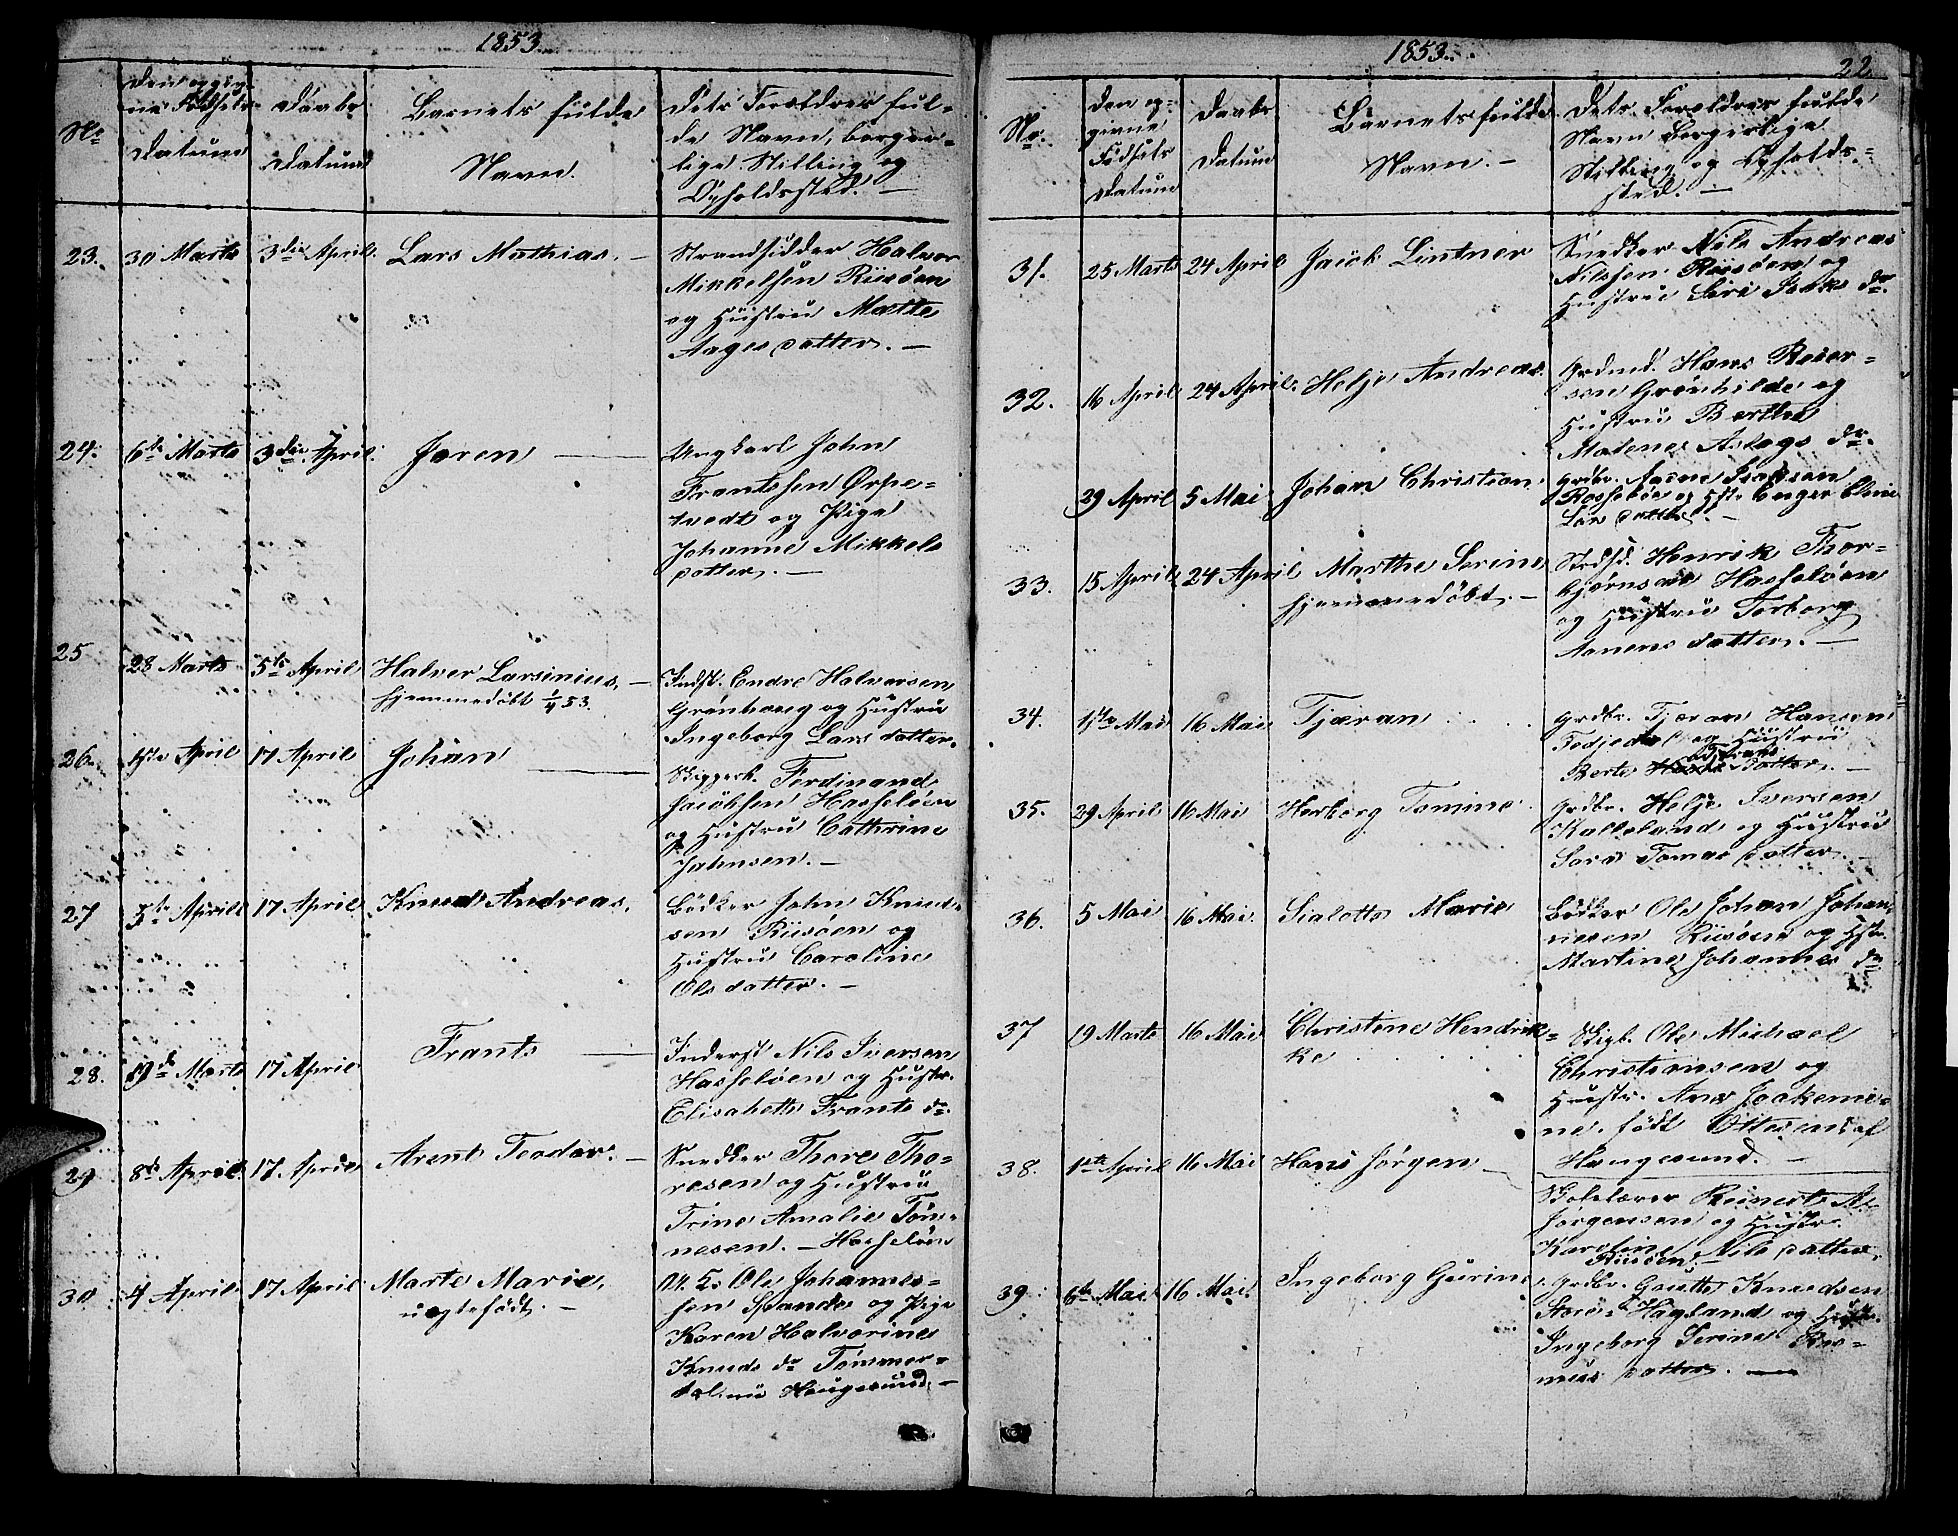 1853.
No
Den opgiv-
ne Fødsels
Datum
Daabs
Datum
Barnets fulde
Navn.
Dets Forældres ful-
de Navn, borger-
lige Stilling og
Opholdssted. —
23.
30 Marts
3die April.
Lars Mathias. —
Strandsidder Halvor
Mikkelsen Riisøen
og Hustru Mætte
Aagesdatter. —
24.
6te Marts
3die April.
Joren —
Ungkarl John
Frantssen Ørpe-
tvedt og Pige
Johanne Mikkels
datter. —
25
28 Marts
5te April
Halver Larsinius. —
hjemmedøbt 1/4 53.
Indst. Endre Halversen
Grønhaug og Hustru
Ingeborg Larsdatter.
26.
1ste April
17 April
Johan —
Skipperb. Ferdinand
Jacobsen Hasseløen
og Hustru Cathrine
Jahnsen. —
27
5te April
17 April
Knud Andreas.
Bødker John Knud-
sen Riisøen og
Hustru Caroline
Olsdatter. —
28.
19de Marts
17 April
Frants —
Inderst Nils Iversen
Hasseløen og Hustr.
Elisabeth Frants dr.
29
8de April.
17. April
Arent Teodor. —
Snedker Thore Tho-
resen og Hustru
Trine Amalie Tøn-
nesen. — Hasseløen
30
4 April
17 April
Marte Marie,
uægtefødt. —
U. K. Ole Johannes-
sen Spande og Pige
Karen Halvorine
Knuds dr Tømmer-
Haugesund. —
1853.
22.
No.
Den op-
givne
Fødsels
Datum
Daabs
Datum
Barnets fulde
Navn. —
Dets Forældres fulde
Navn borgerlige
Stilling og Opholds-
sted. —
31.
25 Marts
24 April
Jacob Lintner
Snedker Nils Andreas
Nilssen Riisøen og
Hustrue Siri Isaks dr.
32.
16 April
24 April.
Helje Andreas.
Grdmd. Hans Reier-
sen Grønhilde og
Hustru Berthe
Malene Aslags dr.
29 April
5 Mai
Johan Christian
Grdbr. Aasne Isaksen
Rossebøe og Hst. Enger Eline
Lars datter. —
33.
15 April
24 April
Marthe Serine
hjemmedøbt. —
Strdsd. Henrik Thor-
bjørnsen Hasseløen
og Hustrue Torborg
Aanensdatter. —
34.
1ste Mai
16 Mai
Tjæran
Grdbr. Tjæran Hansen
Todjedal og Hustrue
Berte datter. —
35.
29 April
16 Mai
Herborg Tomine
Grdbr. Helje Iversen
Kalleland og Hustrue
Sara Tomas datter. —
36.
5 Mai
16 Mai
Sialotte Marie
Bødker Ole Johan Johan-
nesen Riisøen og Hstr.
Martine Johannes dr
37
19 Marts
16 Mai
Christene Hendrik-
ke
Skipb. Ole Michael
Christiansen og
Hustr. Ane Joakemi-
ne, født Ottesen af
Haugesund. —
38.
1ste April
16 Mai
Hans Jørgen —
Skolelærer Reinert A.
Jørgensen og Hustr.
Karoline Nils datter.
Riisøen. —
39.
6te Mai
16 Mai.
Ingeborg Gurine.
Grdbr. Gautte Knudsen
Store Hagland og Hustr.
Ingeborg Serine Ras-
mus datter. —